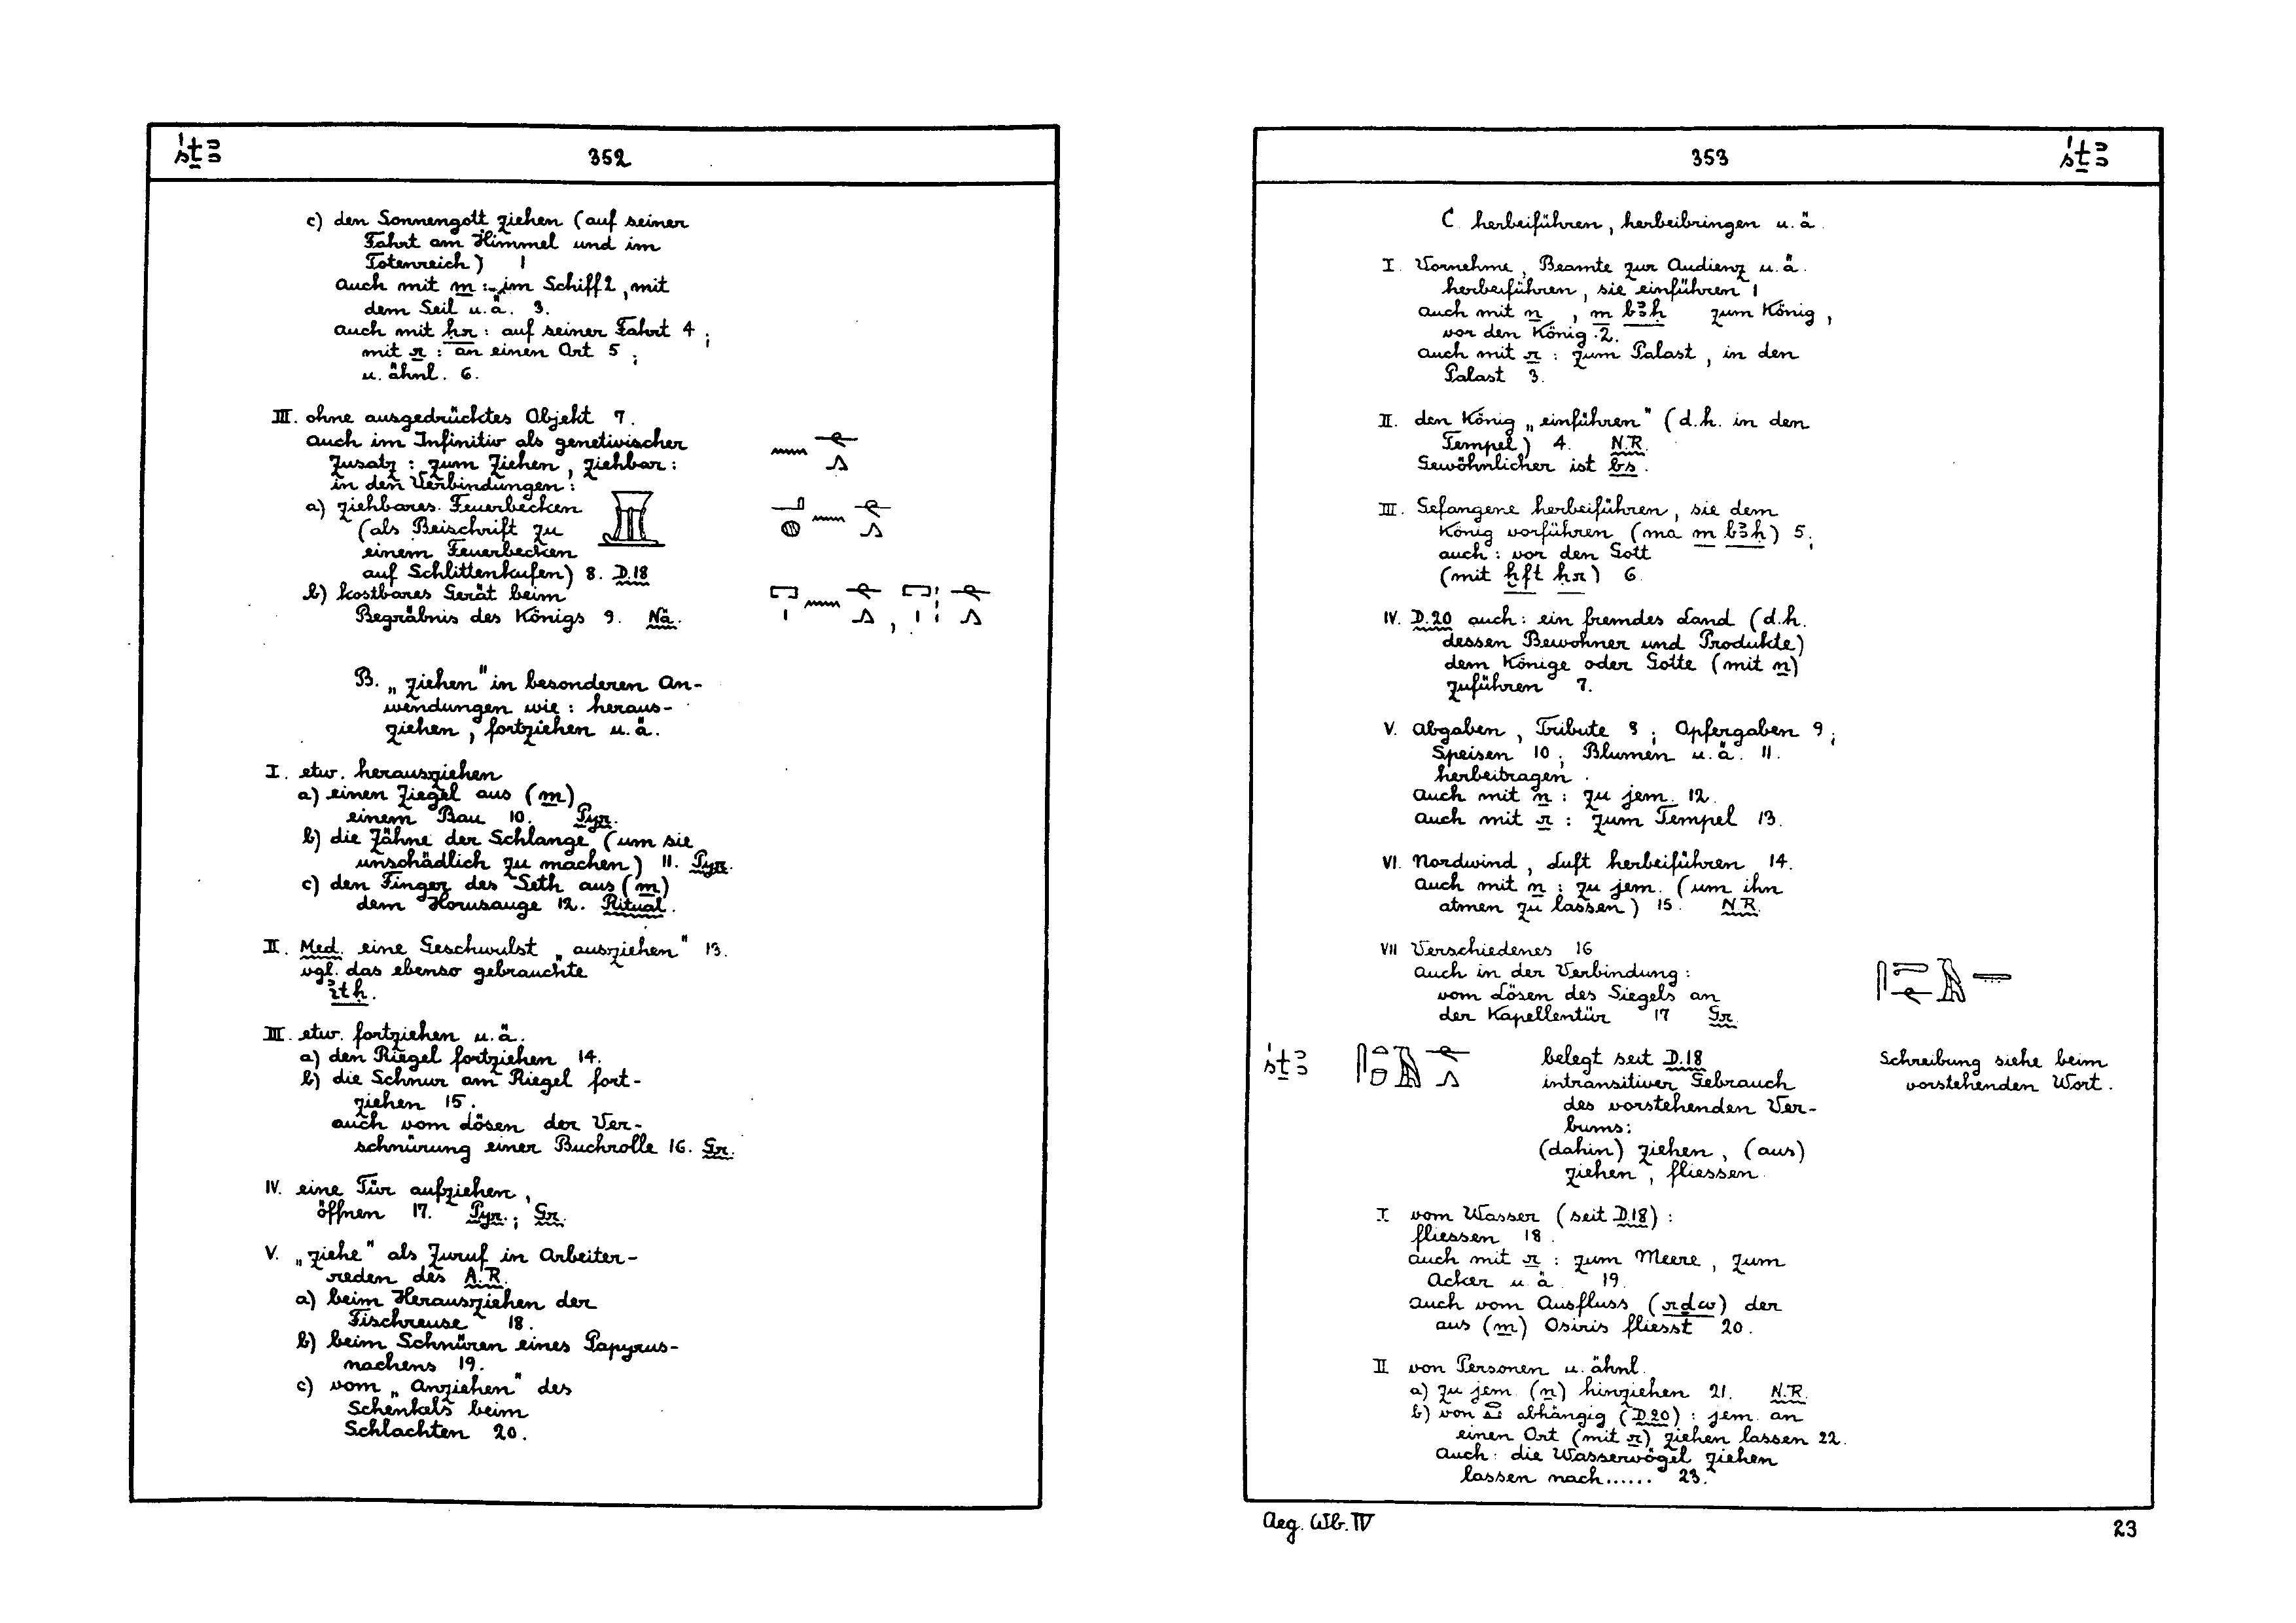 śṯꜣ
352
c) den Sonnengott ziehen (auf seiner
Fahrt am Himmel und im
Totenreich) 1
auch mit m : im Schiff 2, mit
dem Seil u.ä. 3.
auch mit ḥr : auf seiner Fahrt 4 ;
mit r : an einen Ort 5 ;
u. ähnl. 6.
III. ohne ausgedrücktes Objekt 7.
auch im Infinitiv als genetivischer
Zusatz : zum Ziehen, ziehbar :
in den Verbindungen :
a) ziehbares Feuerbecken
(als Beischrift zu
einem Feuerbecken
auf Schlittenkufen) 8. D.18
b) kostbares Gerät beim
Begräbnis des Königs 9. Nä.
B. „ziehen" in besonderen An-
wendungen wie : heraus-
ziehen, fortziehen u.ä.
I. etw. herausziehen
a) einen Ziegel aus (m)
einem Bau 10. Pyr.
b) die Zähne der Schlange (um sie
unschädlich zu machen) 11. Pyr.
c) den Finger des Seth aus (m)
dem Horusauge 12. Ritual.
II. Med. eine Geschwulst „ausziehen" 13.
vgl. das ebenso gebrauchte
ꜣtḥ.
III. etw. fortziehen u.ä.
a) den Riegel fortziehen 14.
b) die Schnur am Riegel fort-
ziehen 15.
auch vom Lösen der Ver-
schnürung einer Buchrolle 16. Gr.
IV. eine Tür aufziehen,
öffnen 17. Pyr. ; Gr.
V. „ziehe" als Zuruf in Arbeiter-
reden des A.R.
a) beim Herausziehen der
Fischreuse 18.
b) beim Schnüren eines Papyrus-
nachens 19.
c) vom „Anziehen" des
Schenkels beim
Schlachten 20.
353
śṯꜣ
C herbeiführen, herbeibringen u.ä.
I. Vornehme, Beamte zur Audienz u.ä.
herbeiführen, sie einführen 1
auch mit n , m bꜣḥ zum König,
vor den König 2.
auch mit r : zum Palast, in den
Palast 3.
II. den König „einführen" (d.h. in den
Tempel) 4. N.R.
Gewöhnlicher ist bs.
III. Gefangene herbeiführen, sie dem
König vorführen (ma m bꜣḥ) 5 ;
auch : vor den Gott
(mit ḫft ḥr) 6.
IV. D.20 auch : ein fremdes Land (d.h.
dessen Bewohner und Produkte)
dem Könige oder Gotte (mit n)
zuführen 7.
V. Abgaben, Tribute 8 ; Opfergaben 9 ;
Speisen 10 ; Blumen u.ä. 11.
herbeitragen.
auch mit n : zu jem. 12.
auch mit r : zum Tempel 13.
VI. Nordwind, Luft herbeiführen 14.
auch mit n : zu jem. (um ihn
atmen zu lassen) 15. N.R.
VII Verschiedenes 16
auch in der Verbindung :
vom Lösen des Siegels an
der Kapellentür 17 Gr.
śṯꜣ belegt seit D.18 Schreibung siehe beim
intransitiver Gebrauch vorstehenden Wort.
des vorstehenden Ver-
bums :
(dahin) ziehen, (aus)
ziehen, fliessen.
I vom Wasser (seit D.18) :
fliessen 18.
auch mit r : zum Meere, zum
Acker u.ä. 19.
auch vom Ausfluss (rḏw) der
aus (m) Osiris fliesst 20.
II von Personen u. ähnl.
a) zu jem. (n) hinziehen 21. N.R.
b) von abhängig (D.20) : jem. an
einen Ort (mit r) ziehen lassen 22.
Auch : die Wasservögel ziehen
lassen nach...... 23.
Aeg. Wb. IV
23